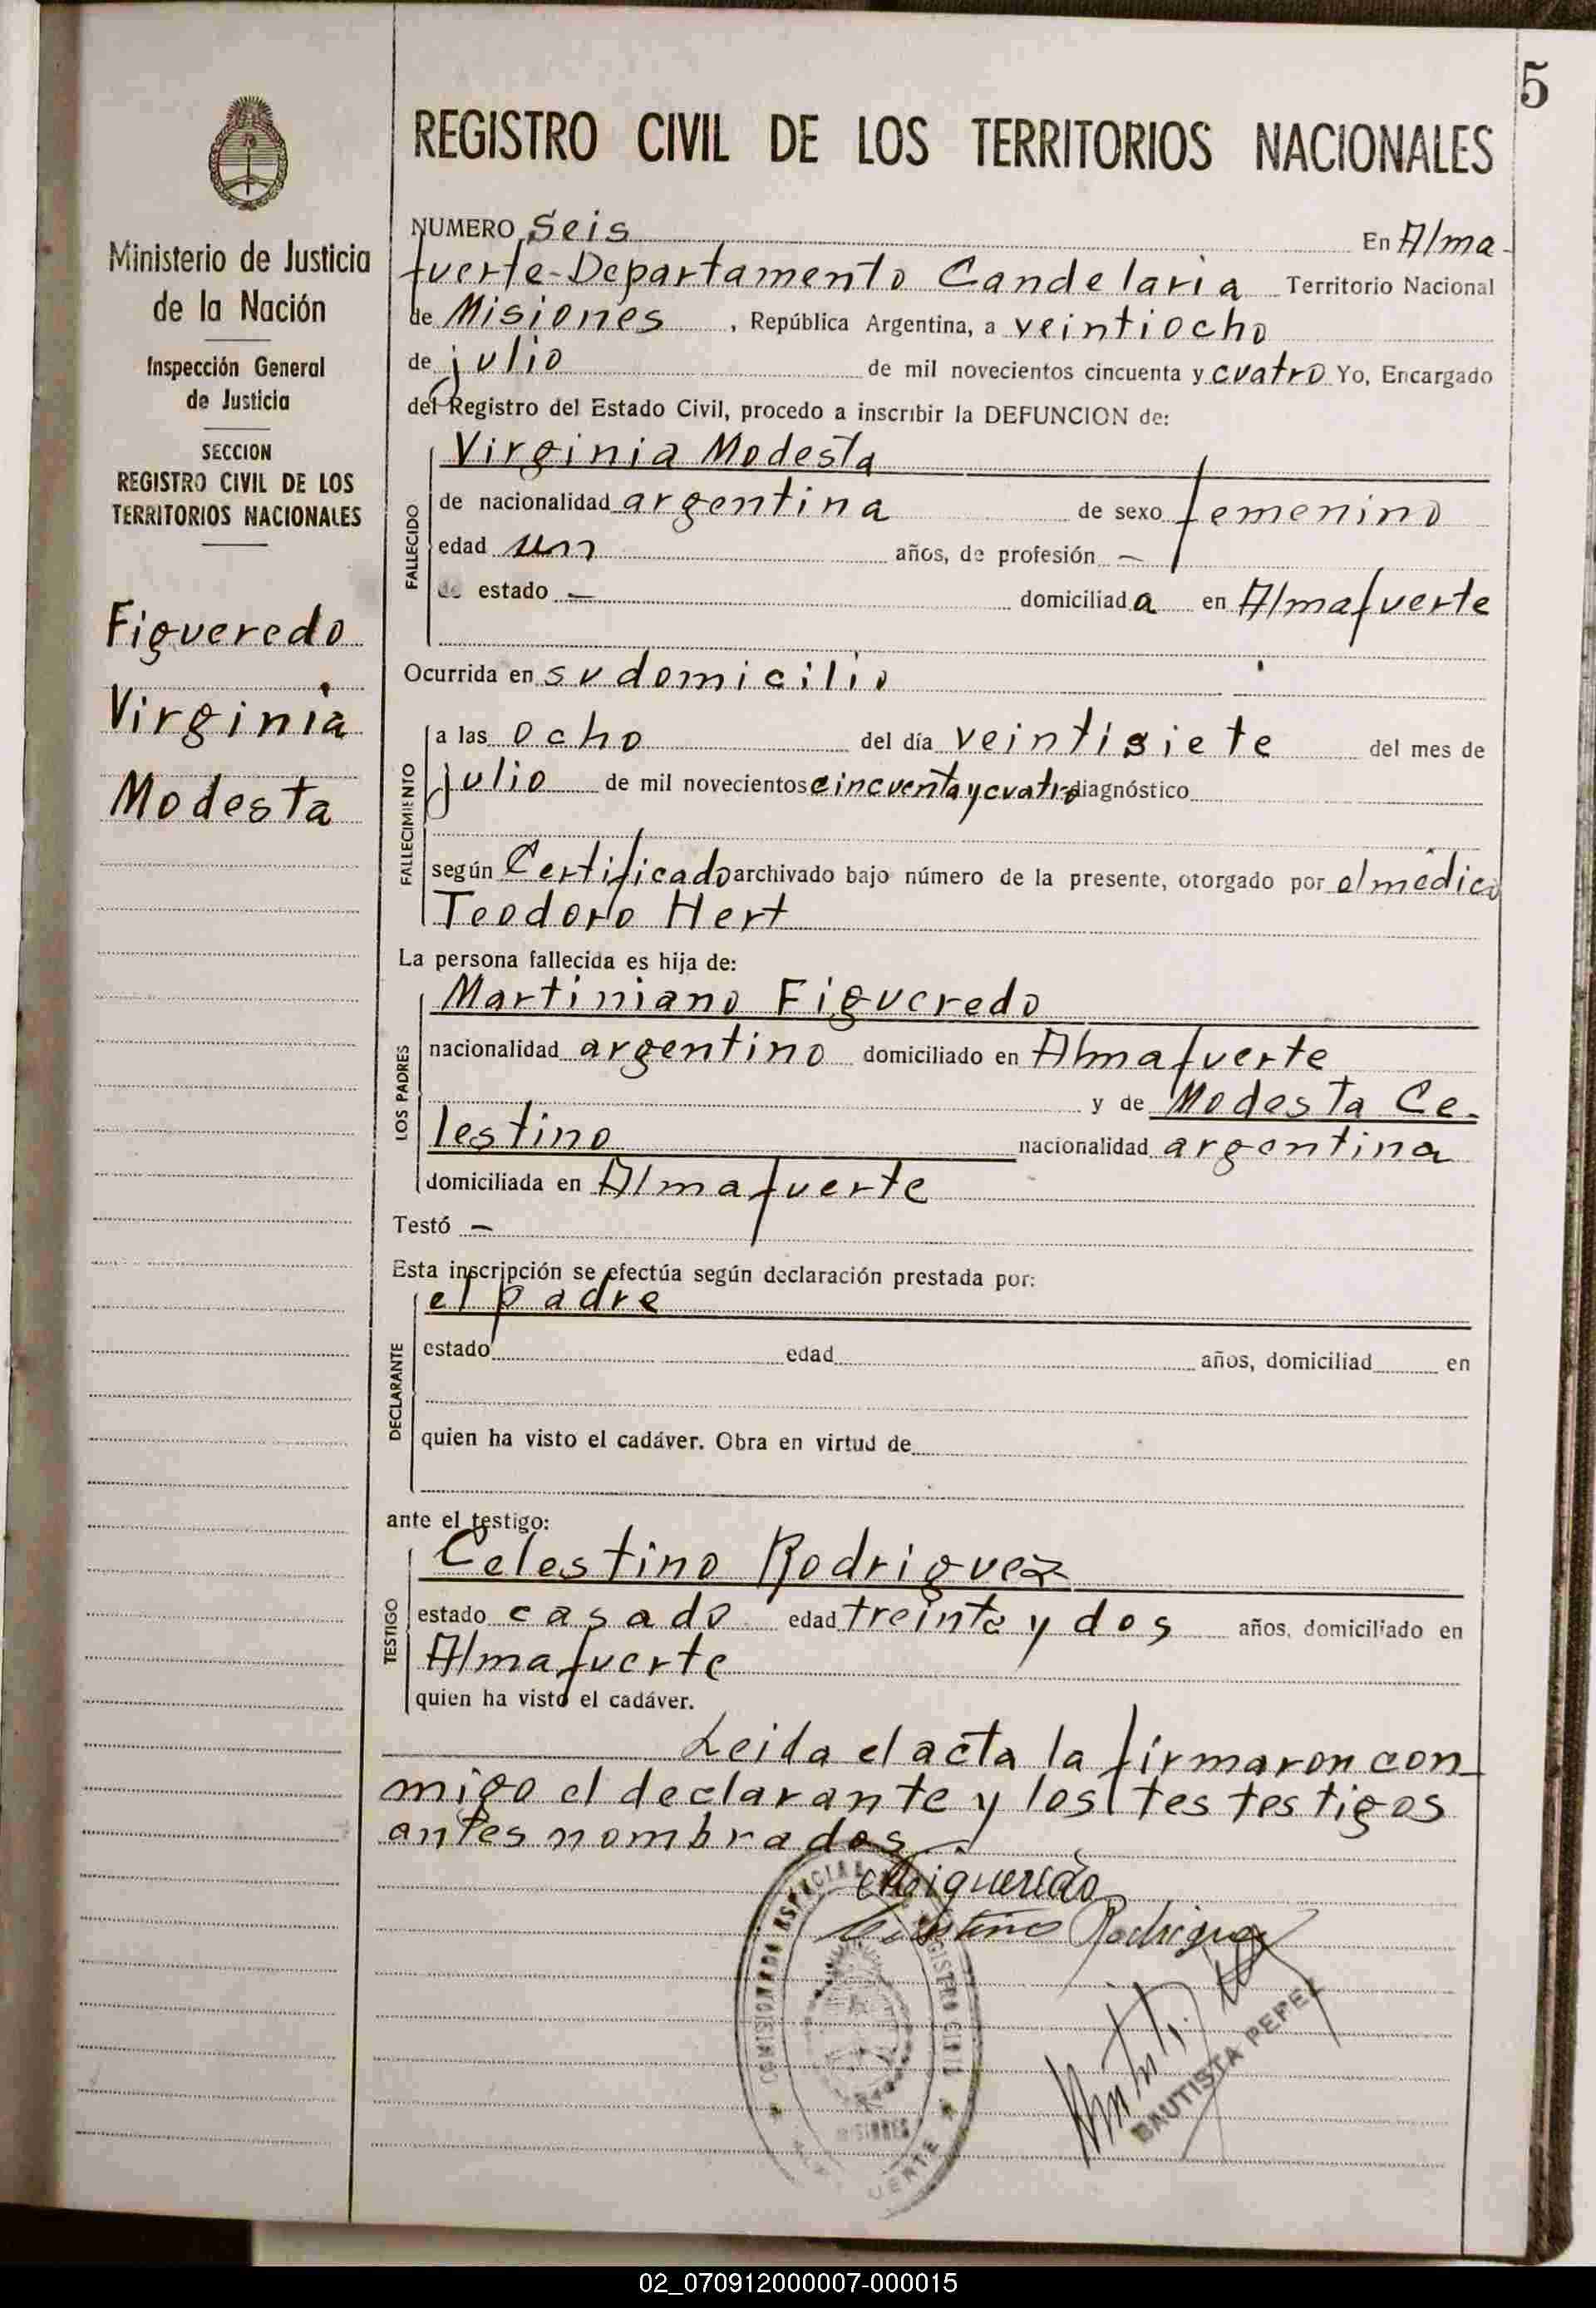 5
REGISTRO CIVIL DE LOS TERRITORIOS NACIONALES
Ministerio de Justicia
de la Nación
Inspección General
de Justicia
SECCION
REGISTRO CIVIL DE LOS
TERRITORIOS NACIONALES
Figueredo
Virginia
Modesta
NUMERO Seis En Alma-
fuerte-Departamento Candelaria Territorio Nacional
de Misiones, República Argentina, a veintiocho
de julio de mil novecientos cincuenta y cuatro Yo, Encargado
del Registro del Estado Civil, procedo a inscribir la DEFUNCION de:
FALLECIDO
Virginia Modesta
de nacionalidad argentina de sexo femenino
edad un años, de profesión —
de estado — domiciliada en Almafuerte
Ocurrida en su domicilio
FALLECIMIENTO
a las ocho del día veintisiete del mes de
julio de mil novecientos cincuenta y cuatro diagnóstico
según Certificado archivado bajo número de la presente, otorgado por el médico
Teodoro Hert
La persona fallecida es hija de:
LOS PADRES
Martiniano Figueredo
nacionalidad argentino domiciliado en Almafuerte
y de Modesta Ce-
lestino nacionalidad argentina
domiciliada en Almafuerte
Testó —
Esta inscripción se efectúa según declaración prestada por:
DECLARANTE
el padre
estado edad años, domiciliad en
quien ha visto el cadáver. Obra en virtud de
ante el testigo:
TESTIGO
Celestino Rodriguez
estado casado edad treinta y dos años, domiciliado en
Almafuerte
quien ha visto el cadáver.
Leida el acta la firmaron con-
migo el declarante y los tes testigos
antes nombrados
Figueredo
Celestino Rodriguez
BAUTISTA PEPE
REGISTRO CIVIL
MISIONES
02_070912000007-000015